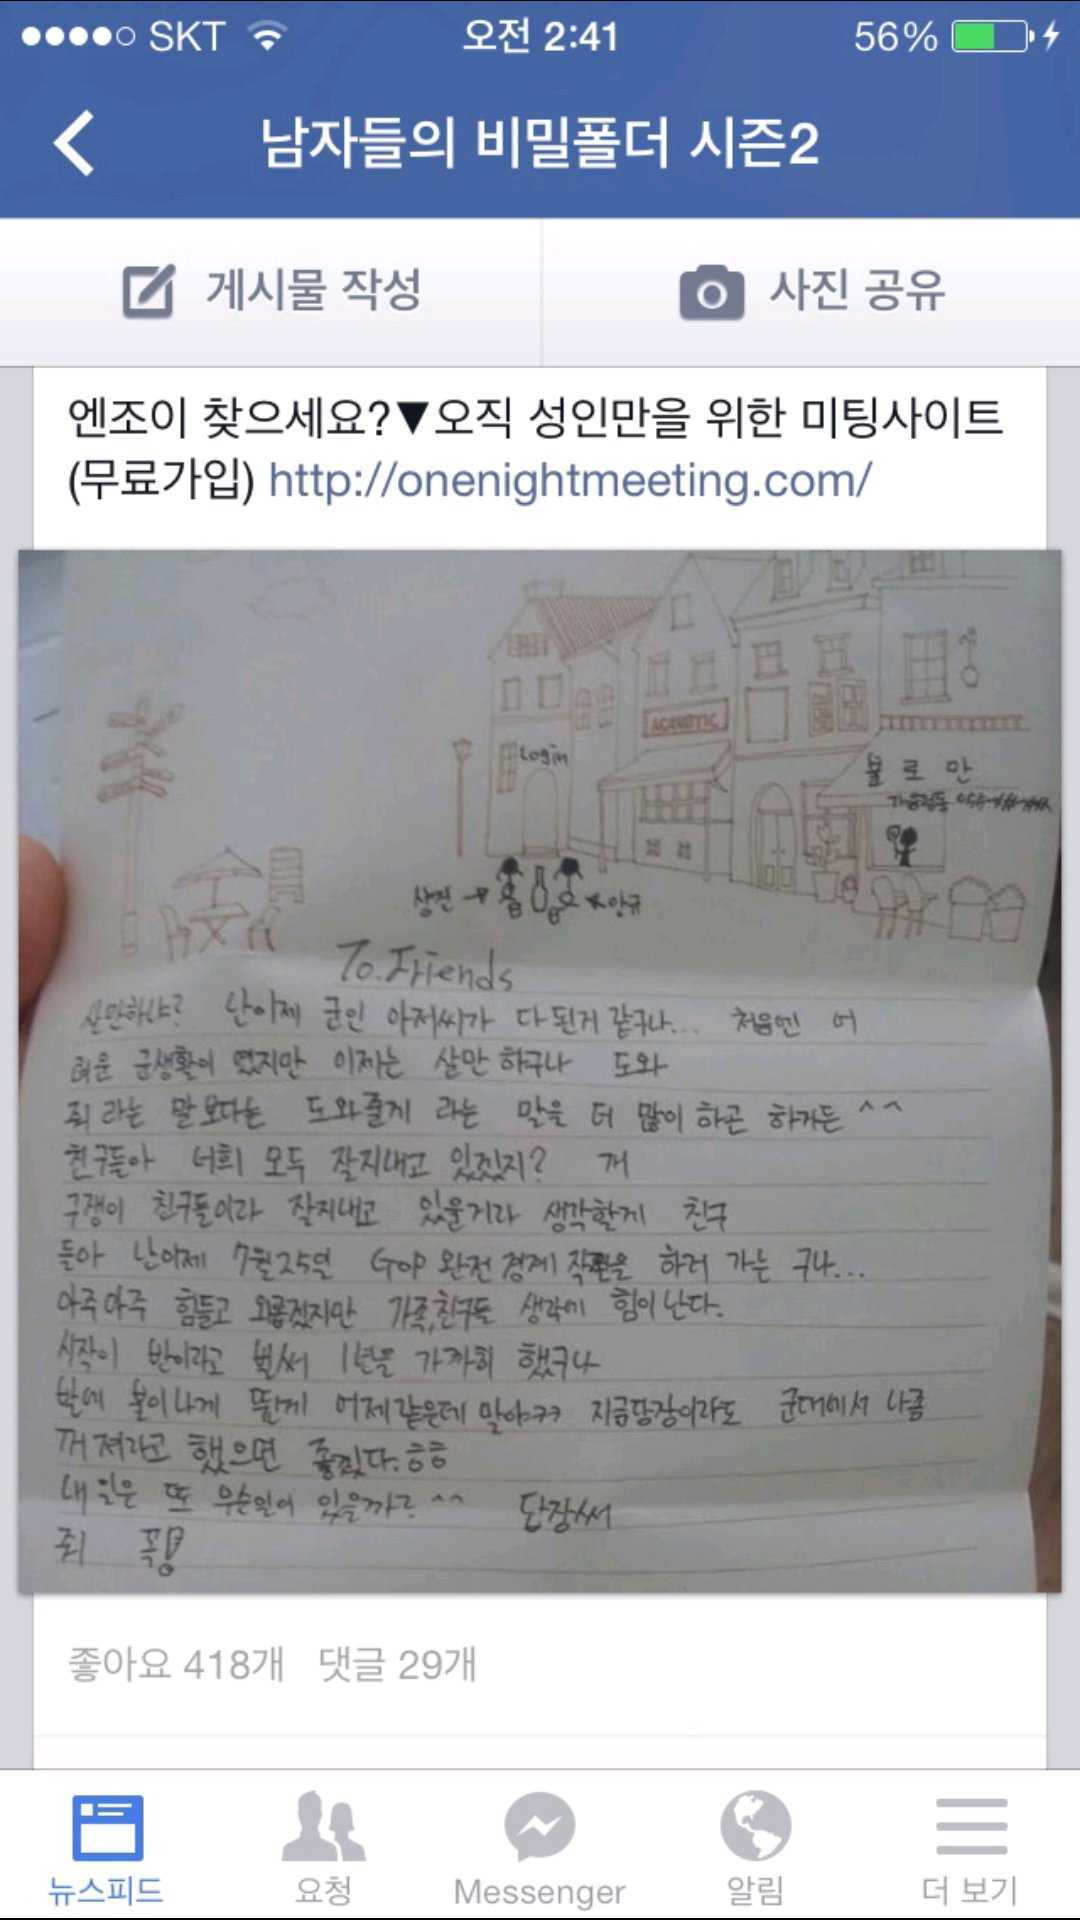 SKT 오전 2:41 56%
남자들의 비밀폴더 시즌2
게시물 작성 사진 공유
엔조이 찾으세요?▼오직 성인만을 위한 미팅사이트
(무료가입) http://onenightmeeting.com/
Login
불로만
상진 → ←양규
To.Friends
살만하냐? 난이제 군인 아저씨가 다된거 같구나... 처음엔 어
려운 군생활이 였지만 이제는 살만 하구나 도와
줘 라는 말보다는 도와줄게 라는 말을 더 많이 하곤 하거든 ^^
친구들아 너희 모두 잘지내고 있겠지? 개
구쟁이 친구들이라 잘지내고 있을거라 생각할게 친구
들아 난이제 7월25일 GOP 완전 경계 작전을 하러 가는 구나...
아주아주 힘들고 외롭겠지만 가족,친구들 생각에 힘이 난다.
시작이 반이라고 벌써 1년을 가까히 했구나
발에 불이나게 뛴게 어제같은데 말야ㅋㅋ 지금당장이라도 군대에서 나좀
꺼져라고 했으면 좋겠다.ㅎㅎ
내일은 또 무슨일이 있을까? ^^ 답장써
줘 꼭!
좋아요 418개 댓글 29개
뉴스피드 요청 Messenger 알림 더 보기